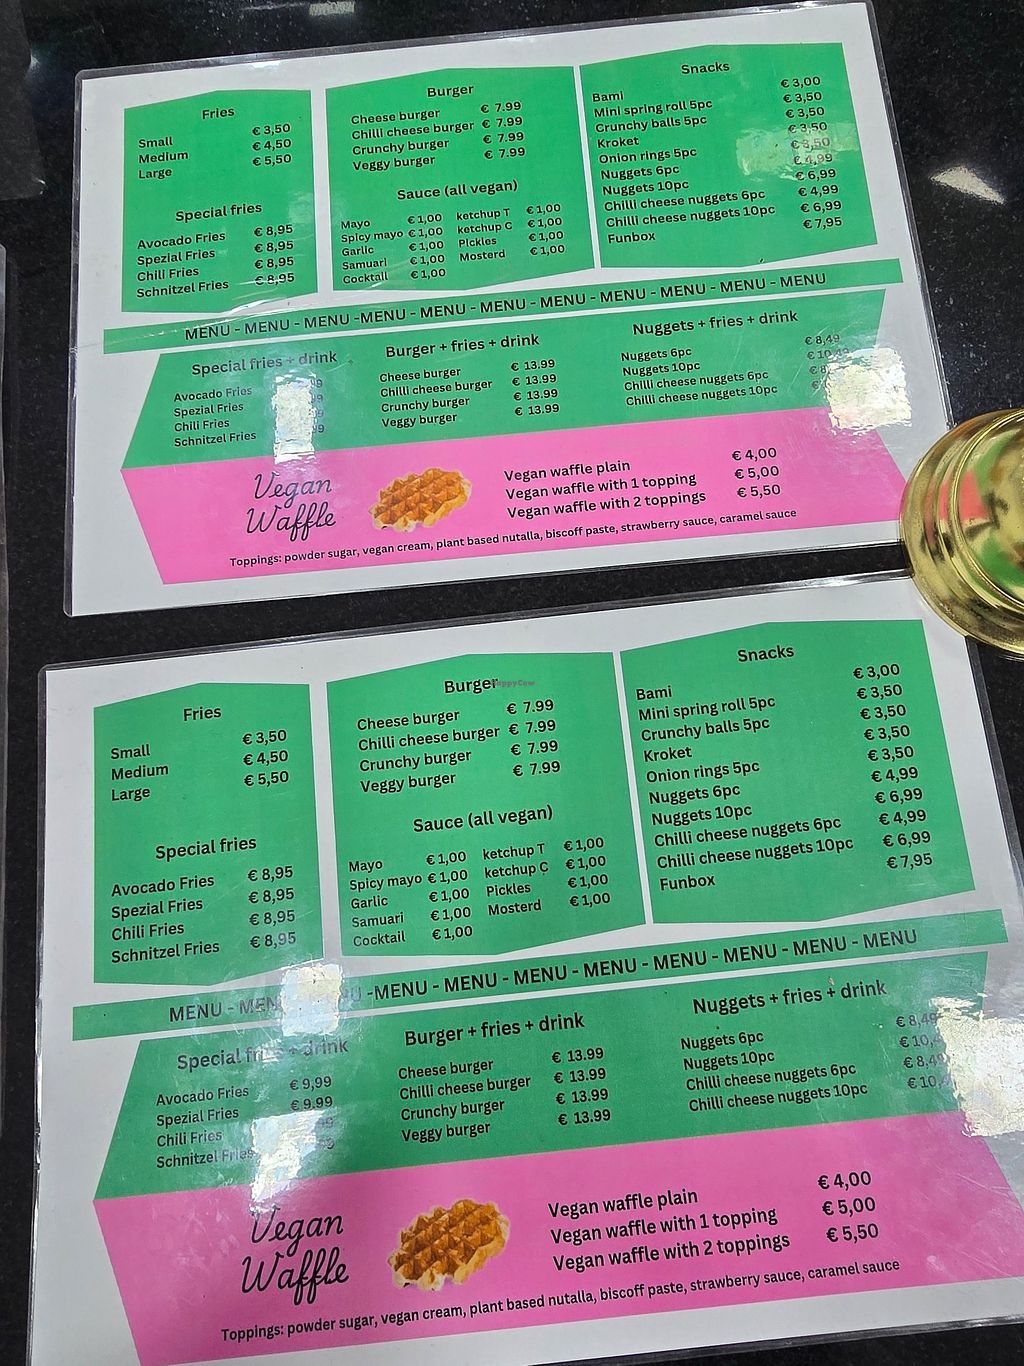 Fries
Small € 3,50
Medium € 4,50
Large € 5,50
Special fries
Avocado Fries € 8,95
Spezial Fries € 8,95
Chili Fries € 8,95
Schnitzel Fries € 8,95
Burger
Cheese burger € 7.99
Chilli cheese burger € 7.99
Crunchy burger € 7.99
Veggy burger € 7.99
Sauce (all vegan)
Mayo € 1,00 ketchup T € 1,00
Spicy mayo € 1,00 ketchup C € 1,00
Garlic € 1,00 Pickles € 1,00
Samuari € 1,00 Mosterd € 1,00
Cocktail € 1,00
Snacks
Bami € 3,00
Mini spring roll 5pc € 3,50
Crunchy balls 5pc € 3,50
Kroket € 3,50
Onion rings 5pc € 3,50
Nuggets 6pc € 4,99
Nuggets 10pc € 6,99
Chilli cheese nuggets 6pc € 4,99
Chilli cheese nuggets 10pc € 6,99
Funbox € 7,95
MENU - MENU - MENU -MENU - MENU - MENU - MENU - MENU - MENU - MENU - MENU
Special fries + drink
Avocado Fries
Spezial Fries
Chili Fries
Schnitzel Fries
Burger + fries + drink
Cheese burger € 13.99
Chilli cheese burger € 13.99
Crunchy burger € 13.99
Veggy burger € 13.99
Nuggets + fries + drink
Nuggets 6pc € 8,49
Nuggets 10pc € 10,49
Chilli cheese nuggets 6pc
Chilli cheese nuggets 10pc
Vegan
Waffle
Vegan waffle plain € 4,00
Vegan waffle with 1 topping € 5,00
Vegan waffle with 2 toppings € 5,50
Toppings: powder sugar, vegan cream, plant based nutalla, biscoff paste, strawberry sauce, caramel sauce
Fries
Small € 3,50
Medium € 4,50
Large € 5,50
Special fries
Avocado Fries € 8,95
Spezial Fries € 8,95
Chili Fries € 8,95
Schnitzel Fries € 8,95
Burger
HappyCow
Cheese burger € 7.99
Chilli cheese burger € 7.99
Crunchy burger € 7.99
Veggy burger € 7.99
Sauce (all vegan)
Mayo € 1,00 ketchup T € 1,00
Spicy mayo € 1,00 ketchup C € 1,00
Garlic € 1,00 Pickles € 1,00
Samuari € 1,00 Mosterd € 1,00
Cocktail € 1,00
Snacks
Bami € 3,00
Mini spring roll 5pc € 3,50
Crunchy balls 5pc € 3,50
Kroket € 3,50
Onion rings 5pc € 3,50
Nuggets 6pc € 4,99
Nuggets 10pc € 6,99
Chilli cheese nuggets 6pc € 4,99
Chilli cheese nuggets 10pc € 6,99
Funbox € 7,95
MENU - MEN -MENU - MENU - MENU - MENU - MENU - MENU - MENU - MENU
Special fries + drink
Avocado Fries € 9,99
Spezial Fries € 9,99
Chili Fries
Schnitzel Fries
Burger + fries + drink
Cheese burger € 13.99
Chilli cheese burger € 13.99
Crunchy burger € 13.99
Veggy burger € 13.99
Nuggets + fries + drink
Nuggets 6pc € 8,49
Nuggets 10pc
Chilli cheese nuggets 6pc € 8,49
Chilli cheese nuggets 10pc
Vegan
Waffle
Vegan waffle plain € 4,00
Vegan waffle with 1 topping € 5,00
Vegan waffle with 2 toppings € 5,50
Toppings: powder sugar, vegan cream, plant based nutalla, biscoff paste, strawberry sauce, caramel sauce